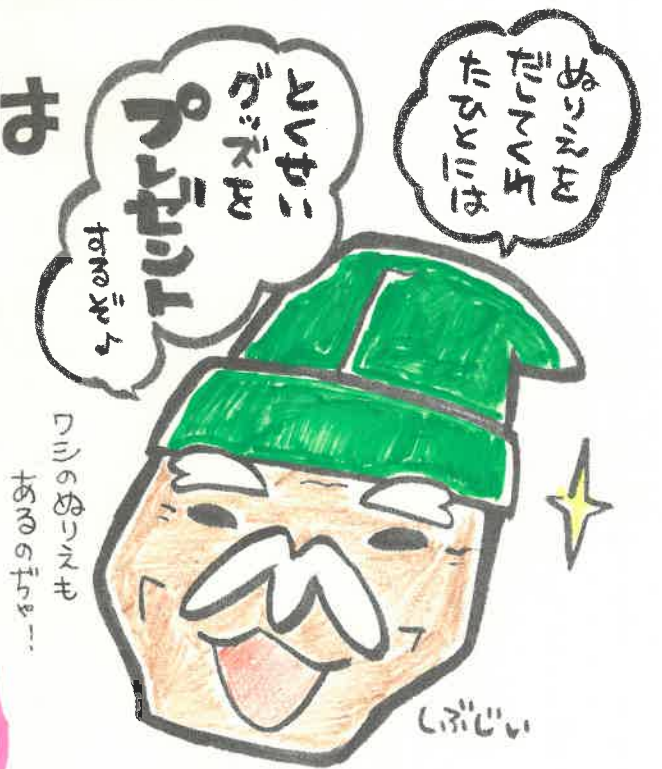 ぬりえを
だしてくれ
たひとには
とくせい
グッズを
プレゼント
するぞぃ
は
ワシのぬりえも
あるのぢゃ!
しぶじい